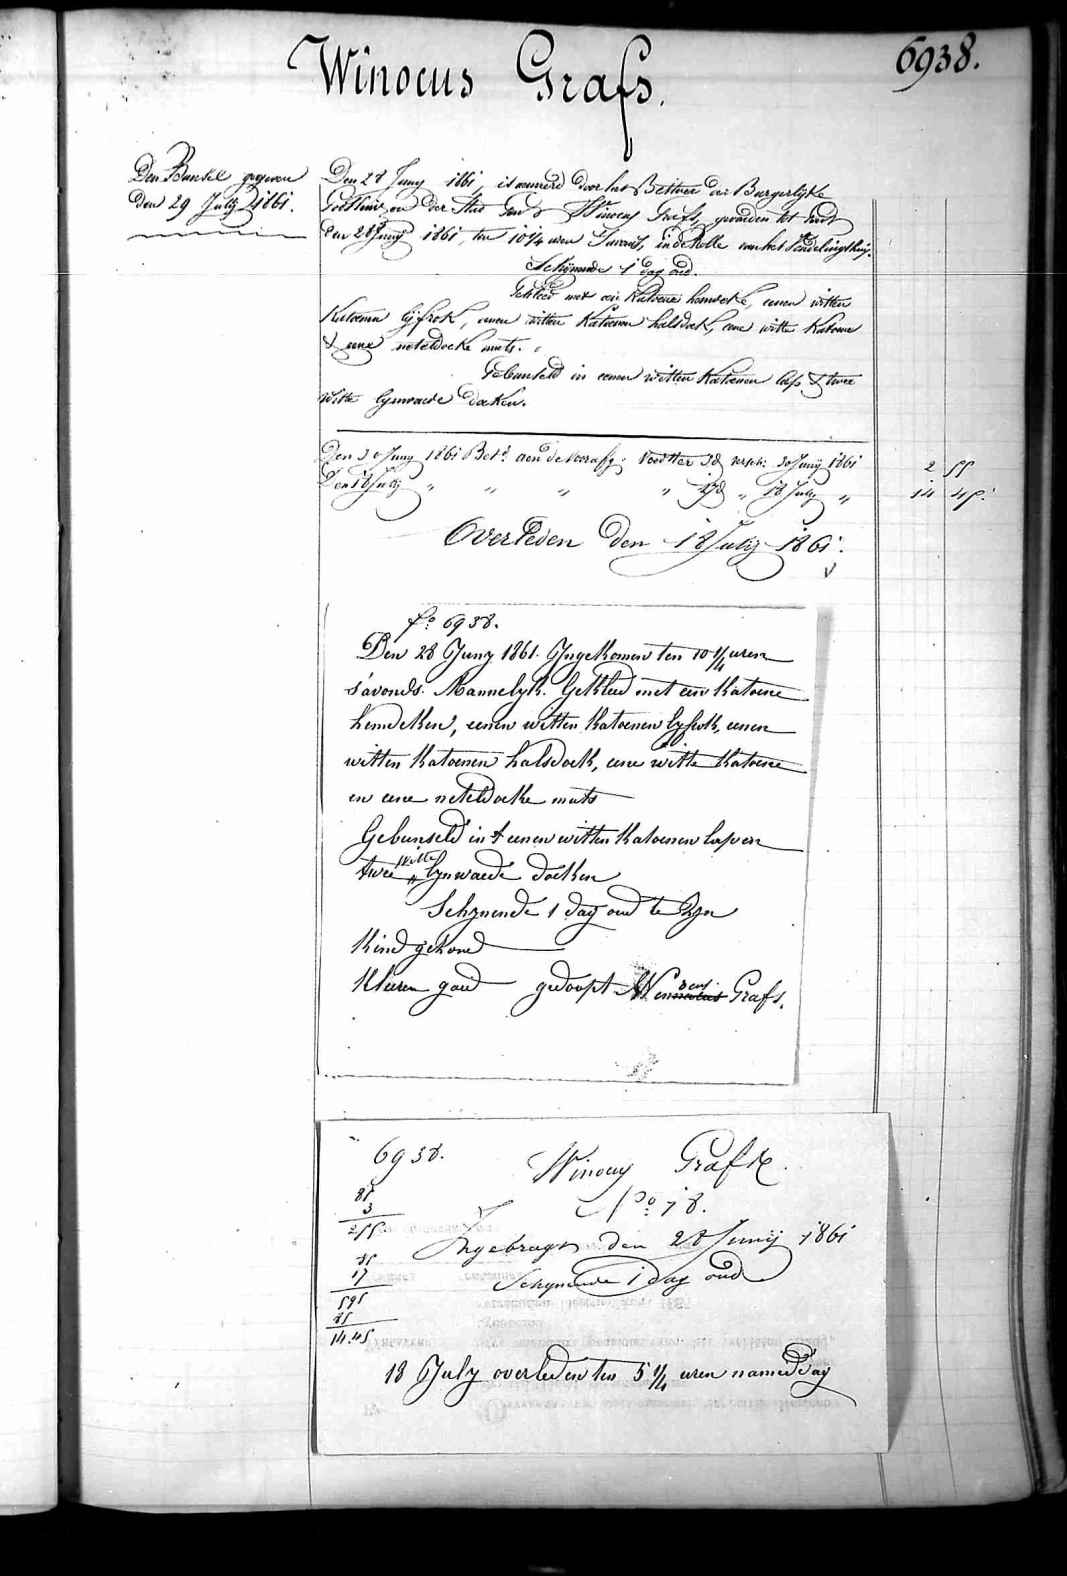 Winocus Grafs.
6938.
Den Bunsel gegeven
den 29 July 1861.
Den 28 Juny 1861, is aenveerd door het Bestier der Burgerlyke
Godshuizen der Stad Gend Winocus Grafs, gevonden tot Gend
den 28 Juny 1861, ten 10 1/4 uren s'avonds, in de Rolle van het Vondelingshuis.
Schynende 1 dag oud.
Gekleed met een katoene hemdeke, eenen witten
katoenen lyfrok, eenen witten katoenen halsdoek, eene witte katoene
& eene neteldoeke muts.
Gebunseld in eenen witten katoenen lap & twee
witte lynwaede doeken.
Den 30 Juny 1861 Bet: aen de Voorsz: Voedster 3d versch: 30 Juny 1861 2 55
Den 18 July " " " " 17d " 18 July " 14 45.
Overleden den 18 July 1861.
fo. 6938.
Den 28 Juny 1861. Ingekomen ten 10 1/4 uren
s'avonds. Mannelyk. Gekleed met een katoene
hemdeken, eenen witten katoenen lyfrok, eenen
witten katoenen halsdoek, eene witte katoene
en eene neteldoeke muts
Gebunseld in eenen witten katoenen lap en
twee witte lynwaede doeken
Schynende 1 dag oud te zyn
Kind gekoned
Kleeren goed gedoopt Winocus Grafs.
6938.
Winocus Grafs
No 78.
85
3
255
Ingebragt den 28 Junij 1861
85
17
595
85
14.45
Schynende 1 dag oud
18 July overleden ten 5 1/4 uren namiddag